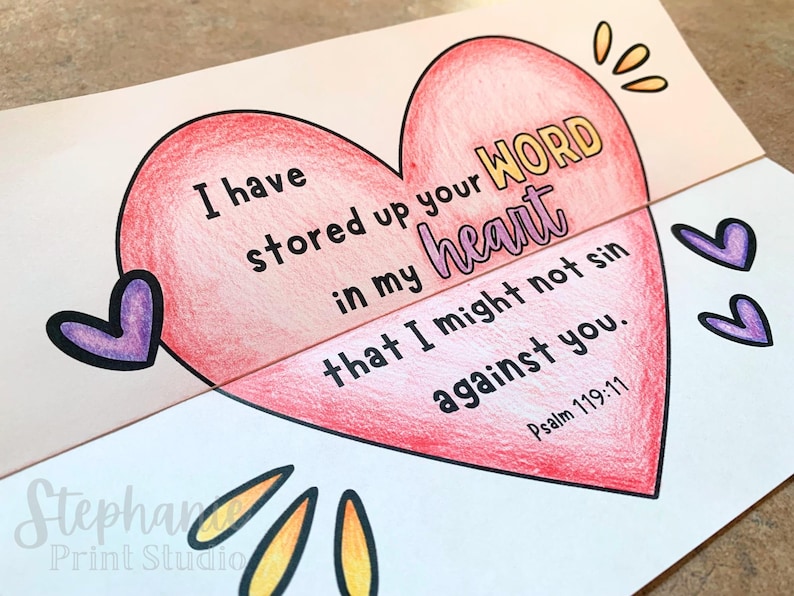 I have
stored up your WORD
in my heart
that I might not sin
against you.
Psalm 119:11
Stephanie
Print Studio